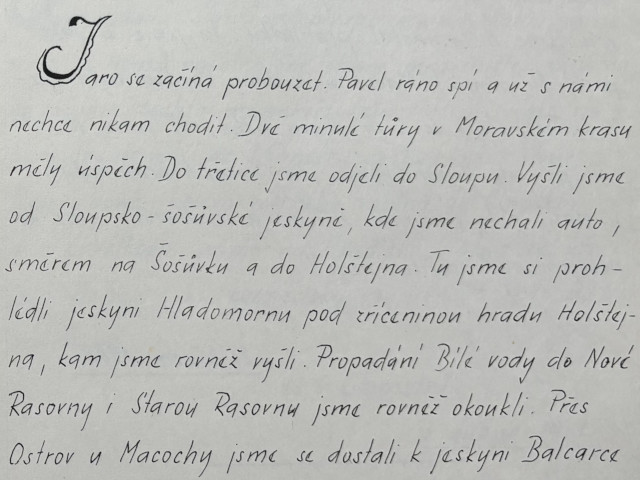 Jaro se začíná probouzet. Pavel ráno spí a už s námi
nechce nikam chodit. Dvě minulé túry v Moravském krasu
měly úspěch. Do třetice jsme odjeli do Sloupu. Vyšli jsme
od Sloupsko-šošůvské jeskyně, kde jsme nechali auto,
směrem na Šošůvku a do Holštejna. Tu jsme si proh-
lédli jeskyni Hladomornu pod zříceninou hradu Holštej-
na, kam jsme rovněž vyšli. Propadání Bílé vody do Nové
Rasovny i Starou Rasovnu jsme rovněž okoukli. Přes
Ostrov u Macochy jsme se dostali k jeskyni Balcarce